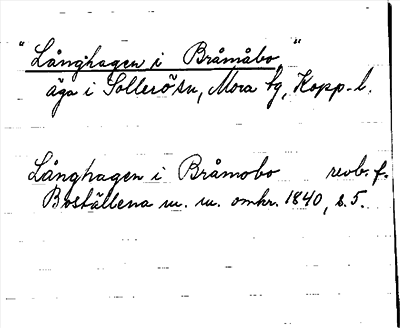 "Långhagen i Bråmåbo"
äga i Sollerö sn, Mora tg, Kopp. l.
Långhagen i Bråmobo revb. f.
Boställena m. m. omkr. 1840, s. 5.